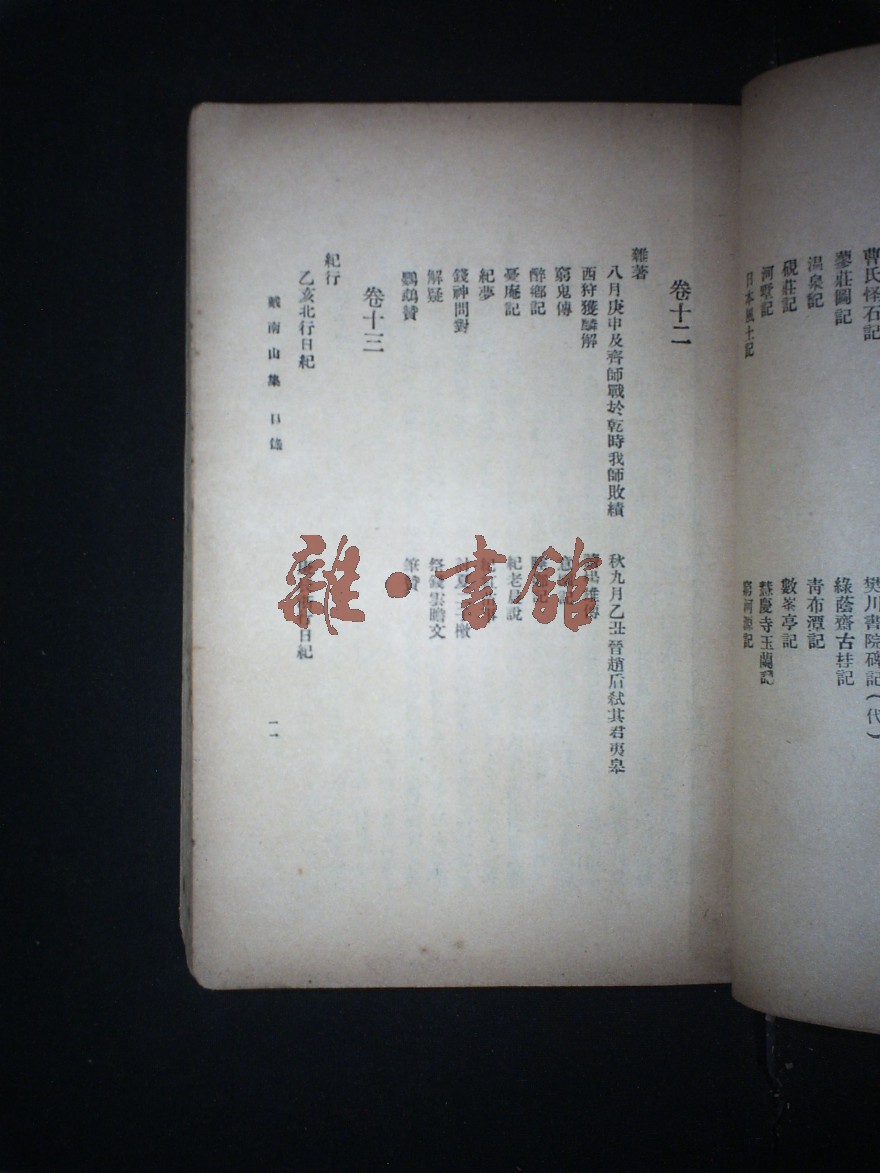 曹氏怪石記 樊川書院碑記(代)
蓼莊圖記 綠蔭齋古桂記
温泉記 青布潭記
硯莊記 數峯亭記
河墅記 慧慶寺玉蘭記
日本風土記 窮河源記
卷十二
雜著
八月庚申及齊師戰於乾時我師敗績 秋九月乙丑晉趙盾弒其君夷皋
西狩獲麟解
窮鬼傳
醉鄉記
憂庵記 紀老農說
紀夢
錢神問對 檄
解疑 祭錢雲瞻文
鸚鵡贊 筆贊
卷十三
紀行
乙亥北行日紀 行日紀
戴南山集 目錄 一一
雜·書館